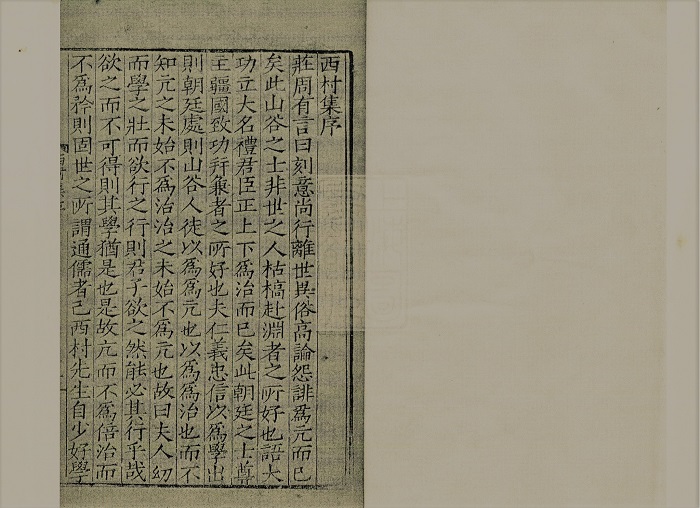 西村集序
莊周有言曰刻意尚行離世異俗高論怨誹爲亢而已
矣此山谷之士非世之人枯槁赴淵者之所好也語大
功立大名禮君臣正上下爲治而已矣此朝廷之士尊
主疆國致功并兼者之所好也夫仁義忠信以爲學出
則朝廷處則山谷人徒以爲爲亢也以爲爲治也而不
知亢之未始不爲治治之未始不爲亢也故曰夫人幼
而學之壯而欲行之行則君子欲之然能必其行乎哉
欲之而不可得則其學猶是也是故亢而不爲偣治而
不爲矜則固世之所謂通儒者已西村先生自少好學